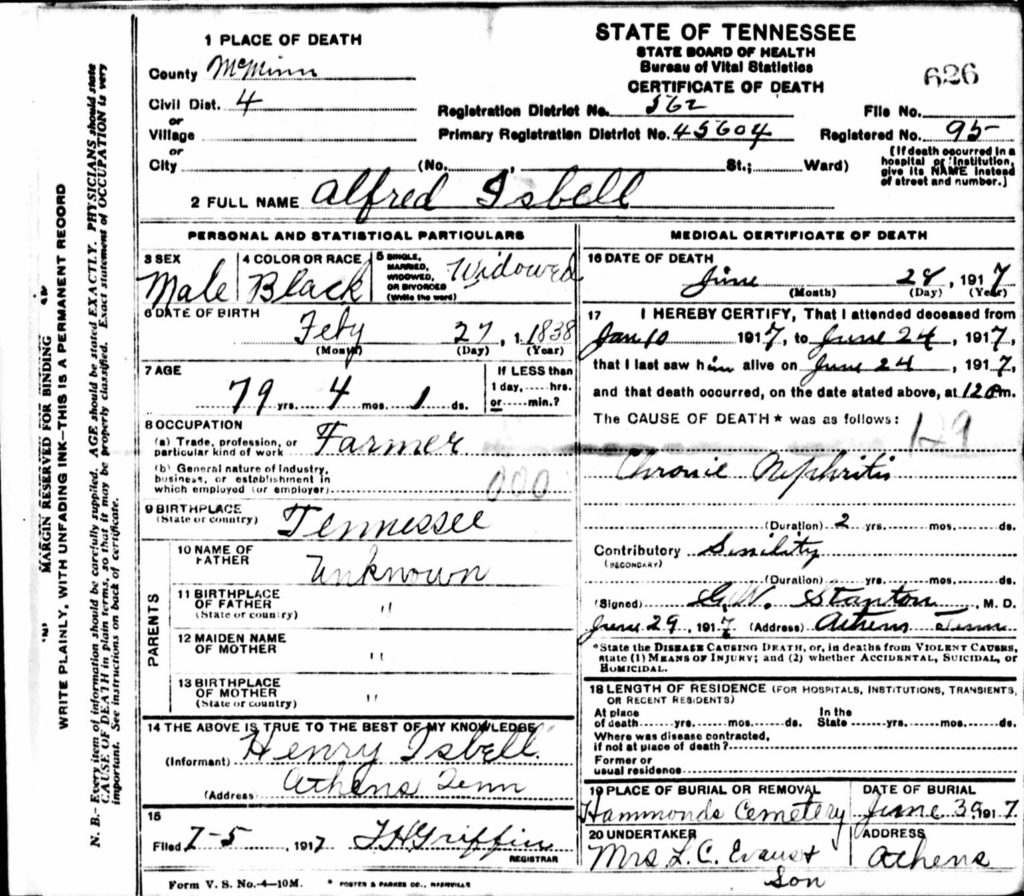 STATE OF TENNESSEE
STATE BOARD OF HEALTH
Bureau of Vital Statistics
CERTIFICATE OF DEATH
626
1 PLACE OF DEATH
County McMinn
Civil Dist. 4
or
Village
or
City (No. , St.; Ward)
Registration District No. 562 File No.
Primary Registration District No. 45604 Registered No. 95
[If death occurred in a hospital or institution, give its NAME instead of street and number.]
2 FULL NAME Alfred Isbell
PERSONAL AND STATISTICAL PARTICULARS
3 SEX Male
4 COLOR OR RACE Black
5 SINGLE, MARRIED, WIDOWED, OR DIVORCED (Write the word) Widowed
6 DATE OF BIRTH Feby 27, 1838
(Month) (Day) (Year)
7 AGE 79 yrs. 4 mos. 1 ds.
If LESS than 1 day, hrs. or min.?
8 OCCUPATION
(a) Trade, profession, or particular kind of work Farmer
(b) General nature of industry, business, or establishment in which employed (or employer) 000
9 BIRTHPLACE (State or country) Tennessee
PARENTS
10 NAME OF FATHER Unknown
11 BIRTHPLACE OF FATHER (State or country) "
12 MAIDEN NAME OF MOTHER "
13 BIRTHPLACE OF MOTHER (State or country) "
14 THE ABOVE IS TRUE TO THE BEST OF MY KNOWLEDGE
(Informant) Henry Isbell
(Address) Athens Tenn
15
Filed 7-5, 1917 T H Griffin
REGISTRAR
Form V. S. No.-4-10M. * FOSTER & PARKES CO., NASHVILLE
MEDICAL CERTIFICATE OF DEATH
16 DATE OF DEATH
June 28, 1917
(Month) (Day) (Year)
17 I HEREBY CERTIFY, That I attended deceased from
Jan 10 1917, to June 24, 1917,
that I last saw him alive on June 24, 1917,
and that death occurred, on the date stated above, at 12 m.
The CAUSE OF DEATH* was as follows:
129
Chronic Nephritis
(Duration) 2 yrs. mos. ds.
Contributory Sinility
(SECONDARY)
(Duration) yrs. mos. ds.
(Signed) G. W. Stanton, M. D.
June 29, 1917 (Address) Athens Tenn
*State the DISEASE CAUSING DEATH, or, in deaths from VIOLENT CAUSES, state (1) MEANS OF INJURY; and (2) whether ACCIDENTAL, SUICIDAL, or HOMICIDAL.
18 LENGTH OF RESIDENCE (FOR HOSPITALS, INSTITUTIONS, TRANSIENTS, OR RECENT RESIDENTS)
At place of death yrs. mos. ds. In the State yrs. mos. ds.
Where was disease contracted,
if not at place of death?
Former or
usual residence
19 PLACE OF BURIAL OR REMOVAL DATE OF BURIAL
Hammonds Cemetery June 39 1917
20 UNDERTAKER ADDRESS
Mrs L. C. Evans & Son Athens
MARGIN RESERVED FOR BINDING
WRITE PLAINLY, WITH UNFADING INK—THIS IS A PERMANENT RECORD
N. B.- Every item of information should be carefully supplied. AGE should be stated EXACTLY. PHYSICIANS should state
CAUSE OF DEATH in plain terms, so that it may be properly classified. Exact statement of OCCUPATION is very
important. See instructions on back of certificate.